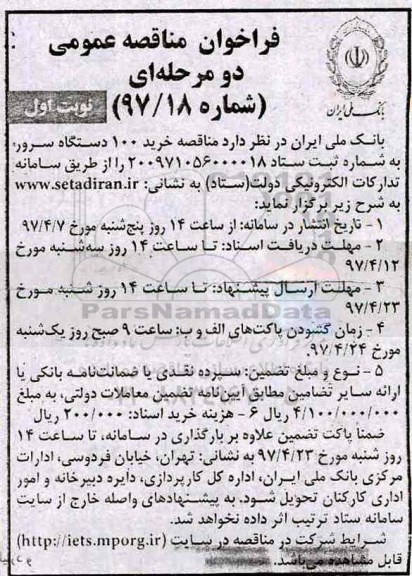 فراخوان مناقصه عمومی
دو مرحله‌ای
(شماره ۹۷/۱۸)
نوبت اول
بانک ملی ایران
بانک ملی ایران در نظر دارد مناقصه خرید ۱۰۰ دستگاه سرور،
به شماره ثبت ستاد ۲۰۰۹۷۱۰۵۶۰۰۰۰۱۸ را از طریق سامانه
تدارکات الکترونیکی دولت(ستاد) به نشانی: www.setadiran.ir
به شرح زیر برگزار نماید:
۱ - تاریخ انتشار در سامانه: از ساعت ۱۴ روز پنج‌شنبه مورخ ۹۷/۴/۷
۲ - مهلت دریافت اسناد: تا ساعت ۱۴ روز سه‌شنبه مورخ
۹۷/۴/۱۲
۳ - مهلت ارسال پیشنهاد: تا ساعت ۱۴ روز شنبه مورخ
۹۷/۴/۲۳
ParsNamadData
۴ - زمان گشودن پاکت‌های الف و ب: ساعت ۹ صبح روز یک‌شنبه
مورخ ۹۷/۴/۲۴.
۵ - نوع و مبلغ تضمین: سپرده نقدی یا ضمانت‌نامه بانکی یا
ارائه سایر تضامین مطابق آیین‌نامه تضمین معاملات دولتی، به مبلغ
۴/۱۰۰/۰۰۰/۰۰۰ ریال ۶ - هزینه خرید اسناد: ۲۰۰/۰۰۰ ریال
ضمناً پاکت تضمین علاوه بر بارگذاری در سامانه، تا ساعت ۱۴
روز شنبه مورخ ۹۷/۴/۲۳ به نشانی: تهران، خیابان فردوسی، ادارات
مرکزی بانک ملی ایران، اداره کل کارپردازی، دایره دبیرخانه و امور
اداری کارکنان تحویل شود. به پیشنهادهای واصله خارج از سایت
سامانه ستاد ترتیب اثر داده نخواهد شد.
شرایط شرکت در مناقصه در سایت (http://iets.mporg.ir)
قابل مشاهده می‌باشد.